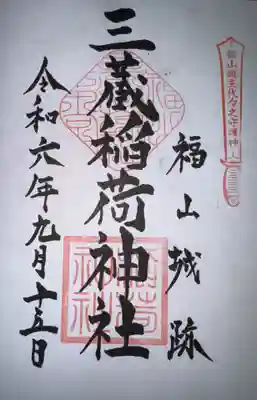 福山藩主代々之守護神
福山城跡
三蔵稲荷神社
令和六年九月十五日